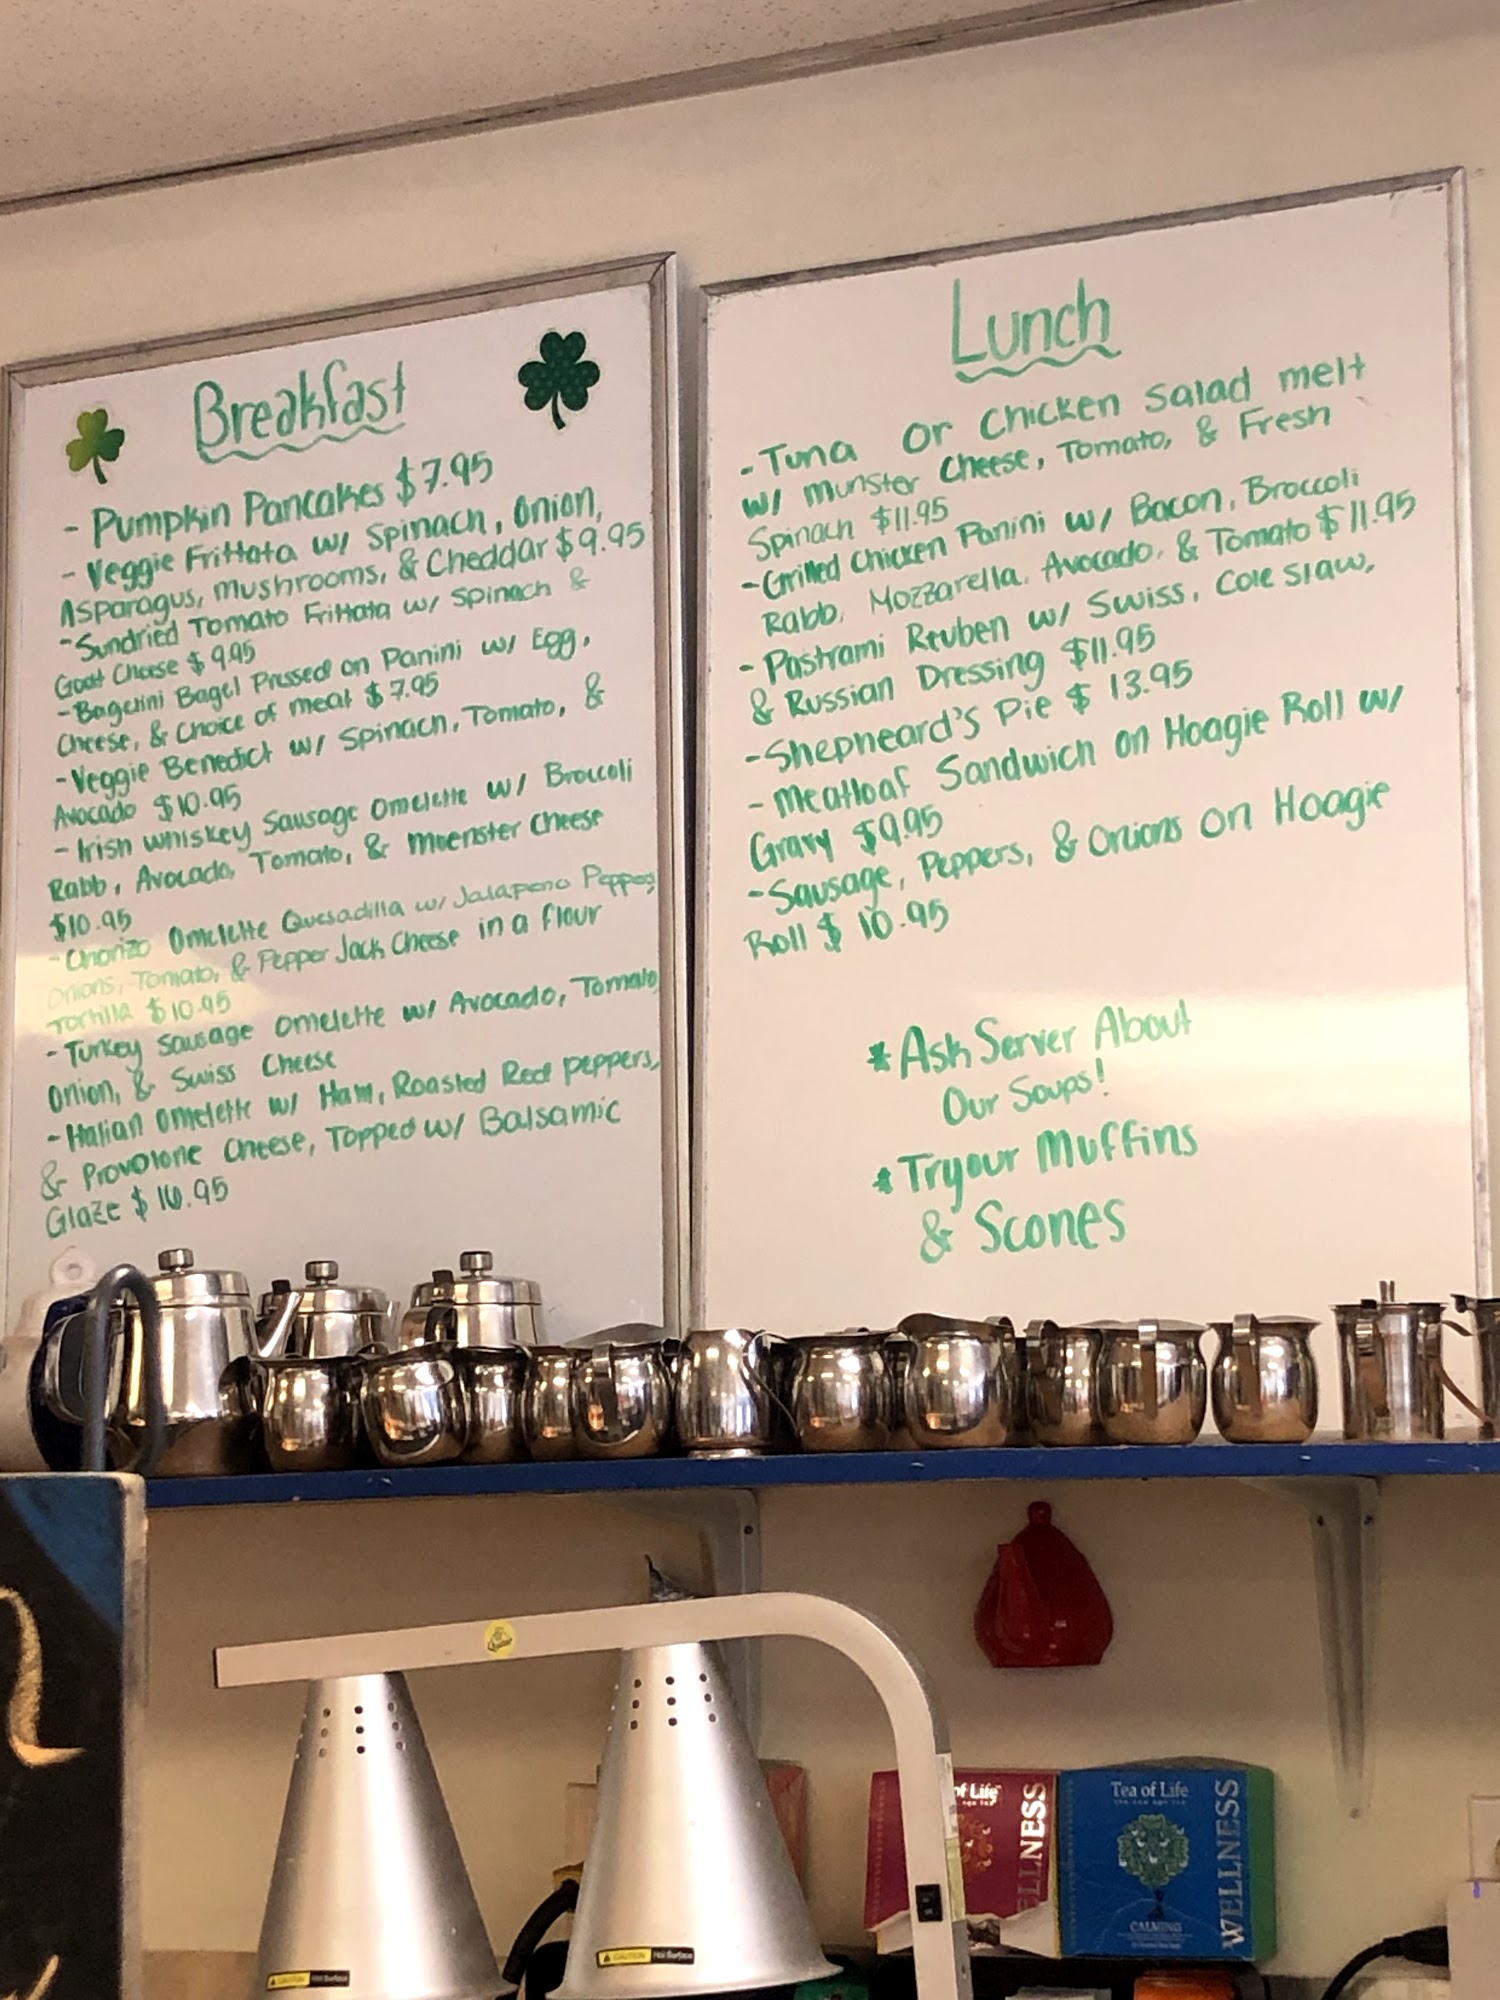 Breakfast
- Pumpkin Pancakes $7.95
- Veggie Frittata w/ Spinach, Onion,
Asparagus, Mushrooms, & Cheddar $9.95
- Sundried Tomato Frittata w/ Spinach &
Goat Cheese $9.95
- Bagelini Bagel Pressed on Panini w/ Egg,
Cheese, & Choice of meat $7.95
- Veggie Benedict w/ Spinach, Tomato, &
Avocado $10.95
- Irish Whiskey Sausage Omelette w/ Broccoli
Rabb, Avocado, Tomato, & Muenster Cheese
$10.95
- Chorizo Omelette Quesadilla w/ Jalapeno Peppers,
Onions, Tomato, & Pepper Jack Cheese in a flour
Tortilla $10.95
- Turkey Sausage Omelette w/ Avocado, Tomato,
Onion, & Swiss Cheese
- Italian Omelette w/ Ham, Roasted Red Peppers,
& Provolone Cheese, Topped w/ Balsamic
Glaze $10.95
Lunch
- Tuna or Chicken Salad melt
w/ Munster Cheese, Tomato, & Fresh
Spinach $11.95
- Grilled Chicken Panini w/ Bacon, Broccoli
Rabb, Mozzarella, Avocado, & Tomato $11.95
- Pastrami Reuben w/ Swiss, Cole Slaw,
& Russian Dressing $11.95
- Shepheard's Pie $13.95
- Meatloaf Sandwich on Hoagie Roll w/
Gravy $9.95
- Sausage, Peppers, & Onions on Hoagie
Roll $10.95
* Ask Server About
Our Soups!
* Try our Muffins
& Scones
of Life
ELLNESS
Tea of Life
WELLNESS
CALMING
CAUTION Hot Surface
CAUTION Hot Surface